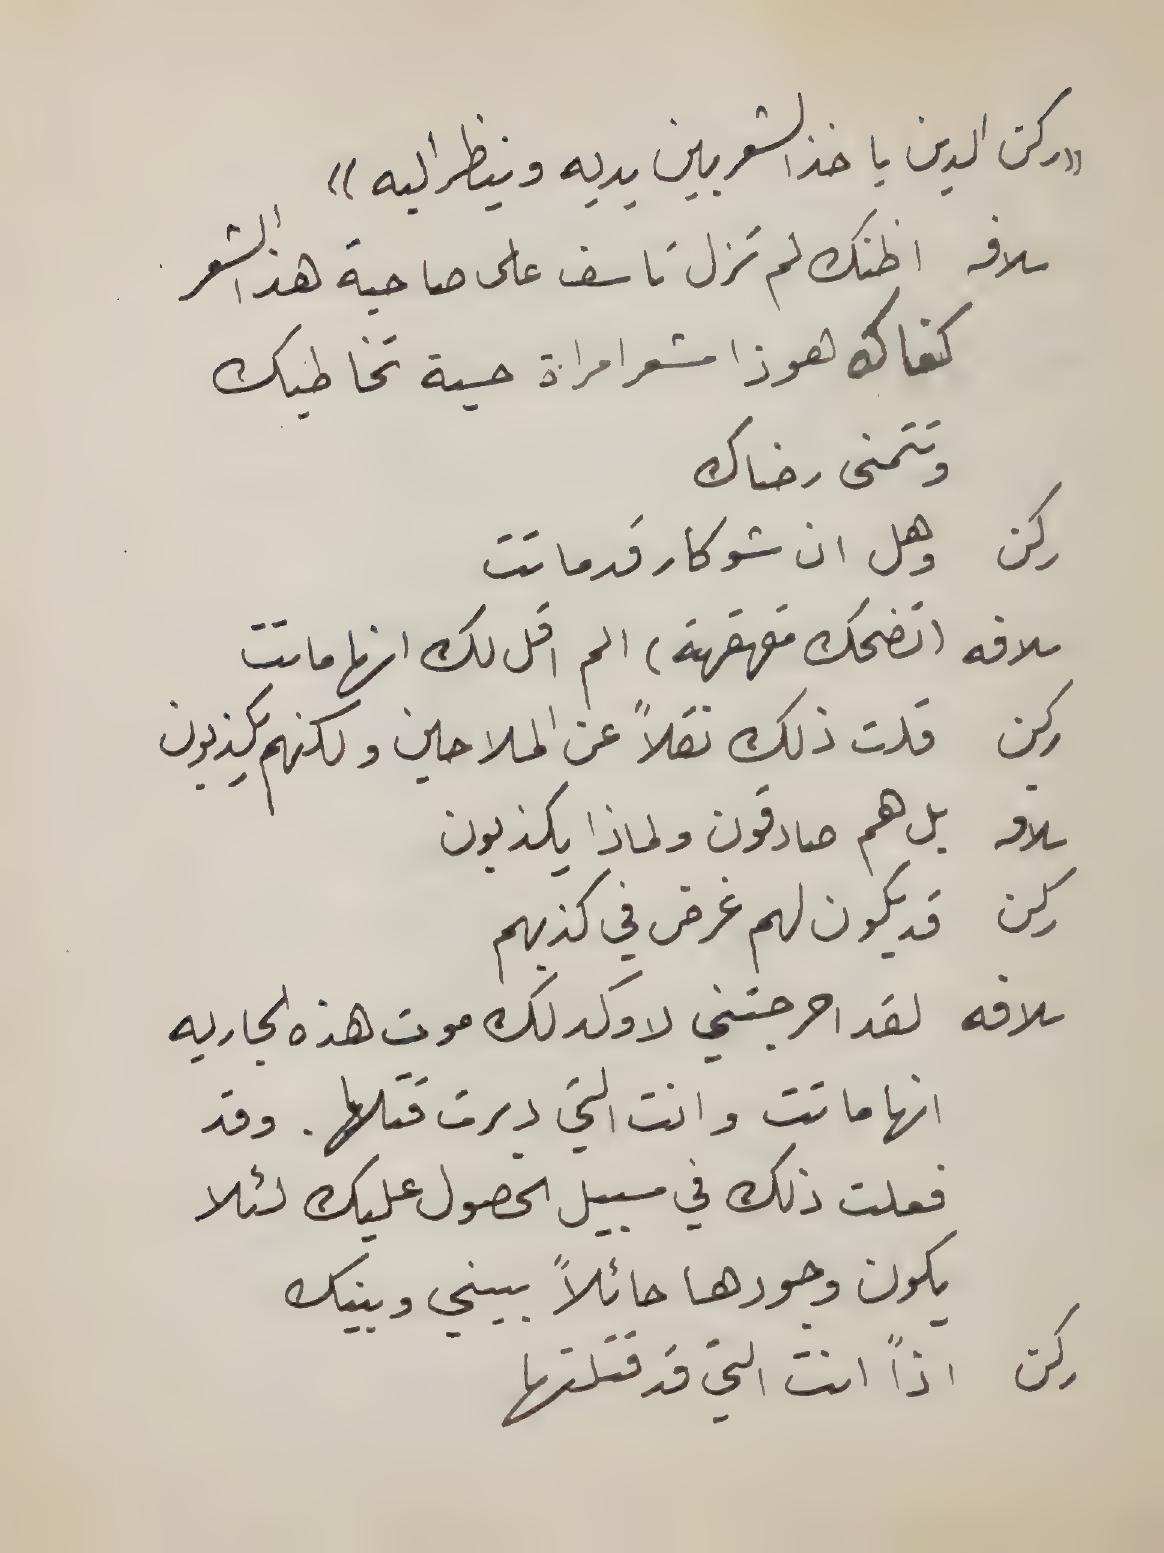 «ركن الدين ياخذ الشعر بين يديه وينظر اليه»
سلافه اظنك لم تزل تاسف على صاحبة هذا الشعر
كفاك هوذا شعر امراة حسية تخاطبك
وتتمنى رضاك
ركن وهل ان شوكار قد ماتت
سلافه (تضحك مقهقهة) الم اقل لك انها ماتت
ركن قلت ذلك نقلاً عن الملاحين ولكنهم يكذبون
سلافه بل هم صادقون ولماذا يكذبون
ركن قد يكون لهم غرض في كذبهم
سلافه لقد احرجتني لاوكد لك موت هذه الجاريه
انها ماتت وانت التي دبرت قتلها. وقد
فعلت ذلك في سبيل الحصول عليك لئلا
يكون وجودها حائلاً بيني وبينك
ركن اذاً انت التي قد قتلتها